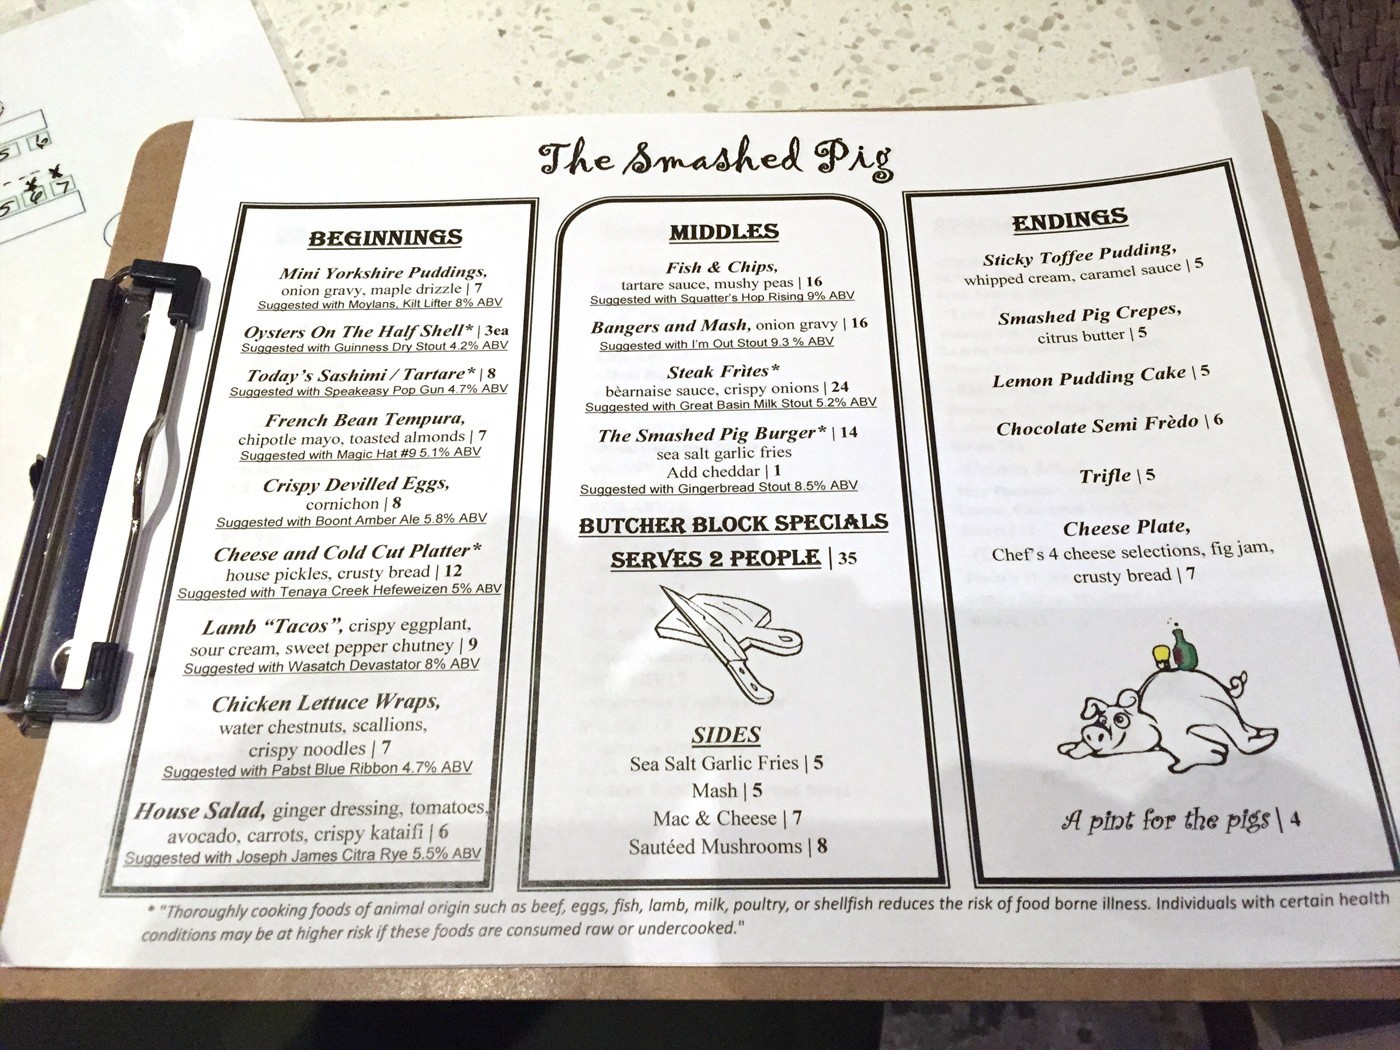 The Smashed Pig
BEGINNINGS
Mini Yorkshire Puddings,
onion gravy, maple drizzle | 7
Suggested with Moylans, Kilt Lifter 8% ABV
Oysters On The Half Shell* | 3ea
Suggested with Guinness Dry Stout 4.2% ABV
Today's Sashimi / Tartare* | 8
Suggested with Speakeasy Pop Gun 4.7% ABV
French Bean Tempura,
chipotle mayo, toasted almonds | 7
Suggested with Magic Hat #9 5.1% ABV
Crispy Devilled Eggs,
cornichon | 8
Suggested with Boont Amber Ale 5.8% ABV
Cheese and Cold Cut Platter*
house pickles, crusty bread | 12
Suggested with Tenaya Creek Hefeweizen 5% ABV
Lamb "Tacos", crispy eggplant,
sour cream, sweet pepper chutney | 9
Suggested with Wasatch Devastator 8% ABV
Chicken Lettuce Wraps,
water chestnuts, scallions,
crispy noodles | 7
Suggested with Pabst Blue Ribbon 4.7% ABV
House Salad, ginger dressing, tomatoes,
avocado, carrots, crispy kataifi | 6
Suggested with Joseph James Citra Rye 5.5% ABV
MIDDLES
Fish & Chips,
tartare sauce, mushy peas | 16
Suggested with Squatter's Hop Rising 9% ABV
Bangers and Mash, onion gravy | 16
Suggested with I'm Out Stout 9.3 % ABV
Steak Frìtes*
bèarnaise sauce, crispy onions | 24
Suggested with Great Basin Milk Stout 5.2% ABV
The Smashed Pig Burger* | 14
sea salt garlic fries
Add cheddar | 1
Suggested with Gingerbread Stout 8.5% ABV
BUTCHER BLOCK SPECIALS
SERVES 2 PEOPLE | 35
SIDES
Sea Salt Garlic Fries | 5
Mash | 5
Mac & Cheese | 7
Sautéed Mushrooms | 8
ENDINGS
Sticky Toffee Pudding,
whipped cream, caramel sauce | 5
Smashed Pig Crepes,
citrus butter | 5
Lemon Pudding Cake | 5
Chocolate Semi Frèdo | 6
Trifle | 5
Cheese Plate,
Chef's 4 cheese selections, fig jam,
crusty bread | 7
A pint for the pigs | 4
* "Thoroughly cooking foods of animal origin such as beef, eggs, fish, lamb, milk, poultry, or shellfish reduces the risk of food borne illness. Individuals with certain health
conditions may be at higher risk if these foods are consumed raw or undercooked."